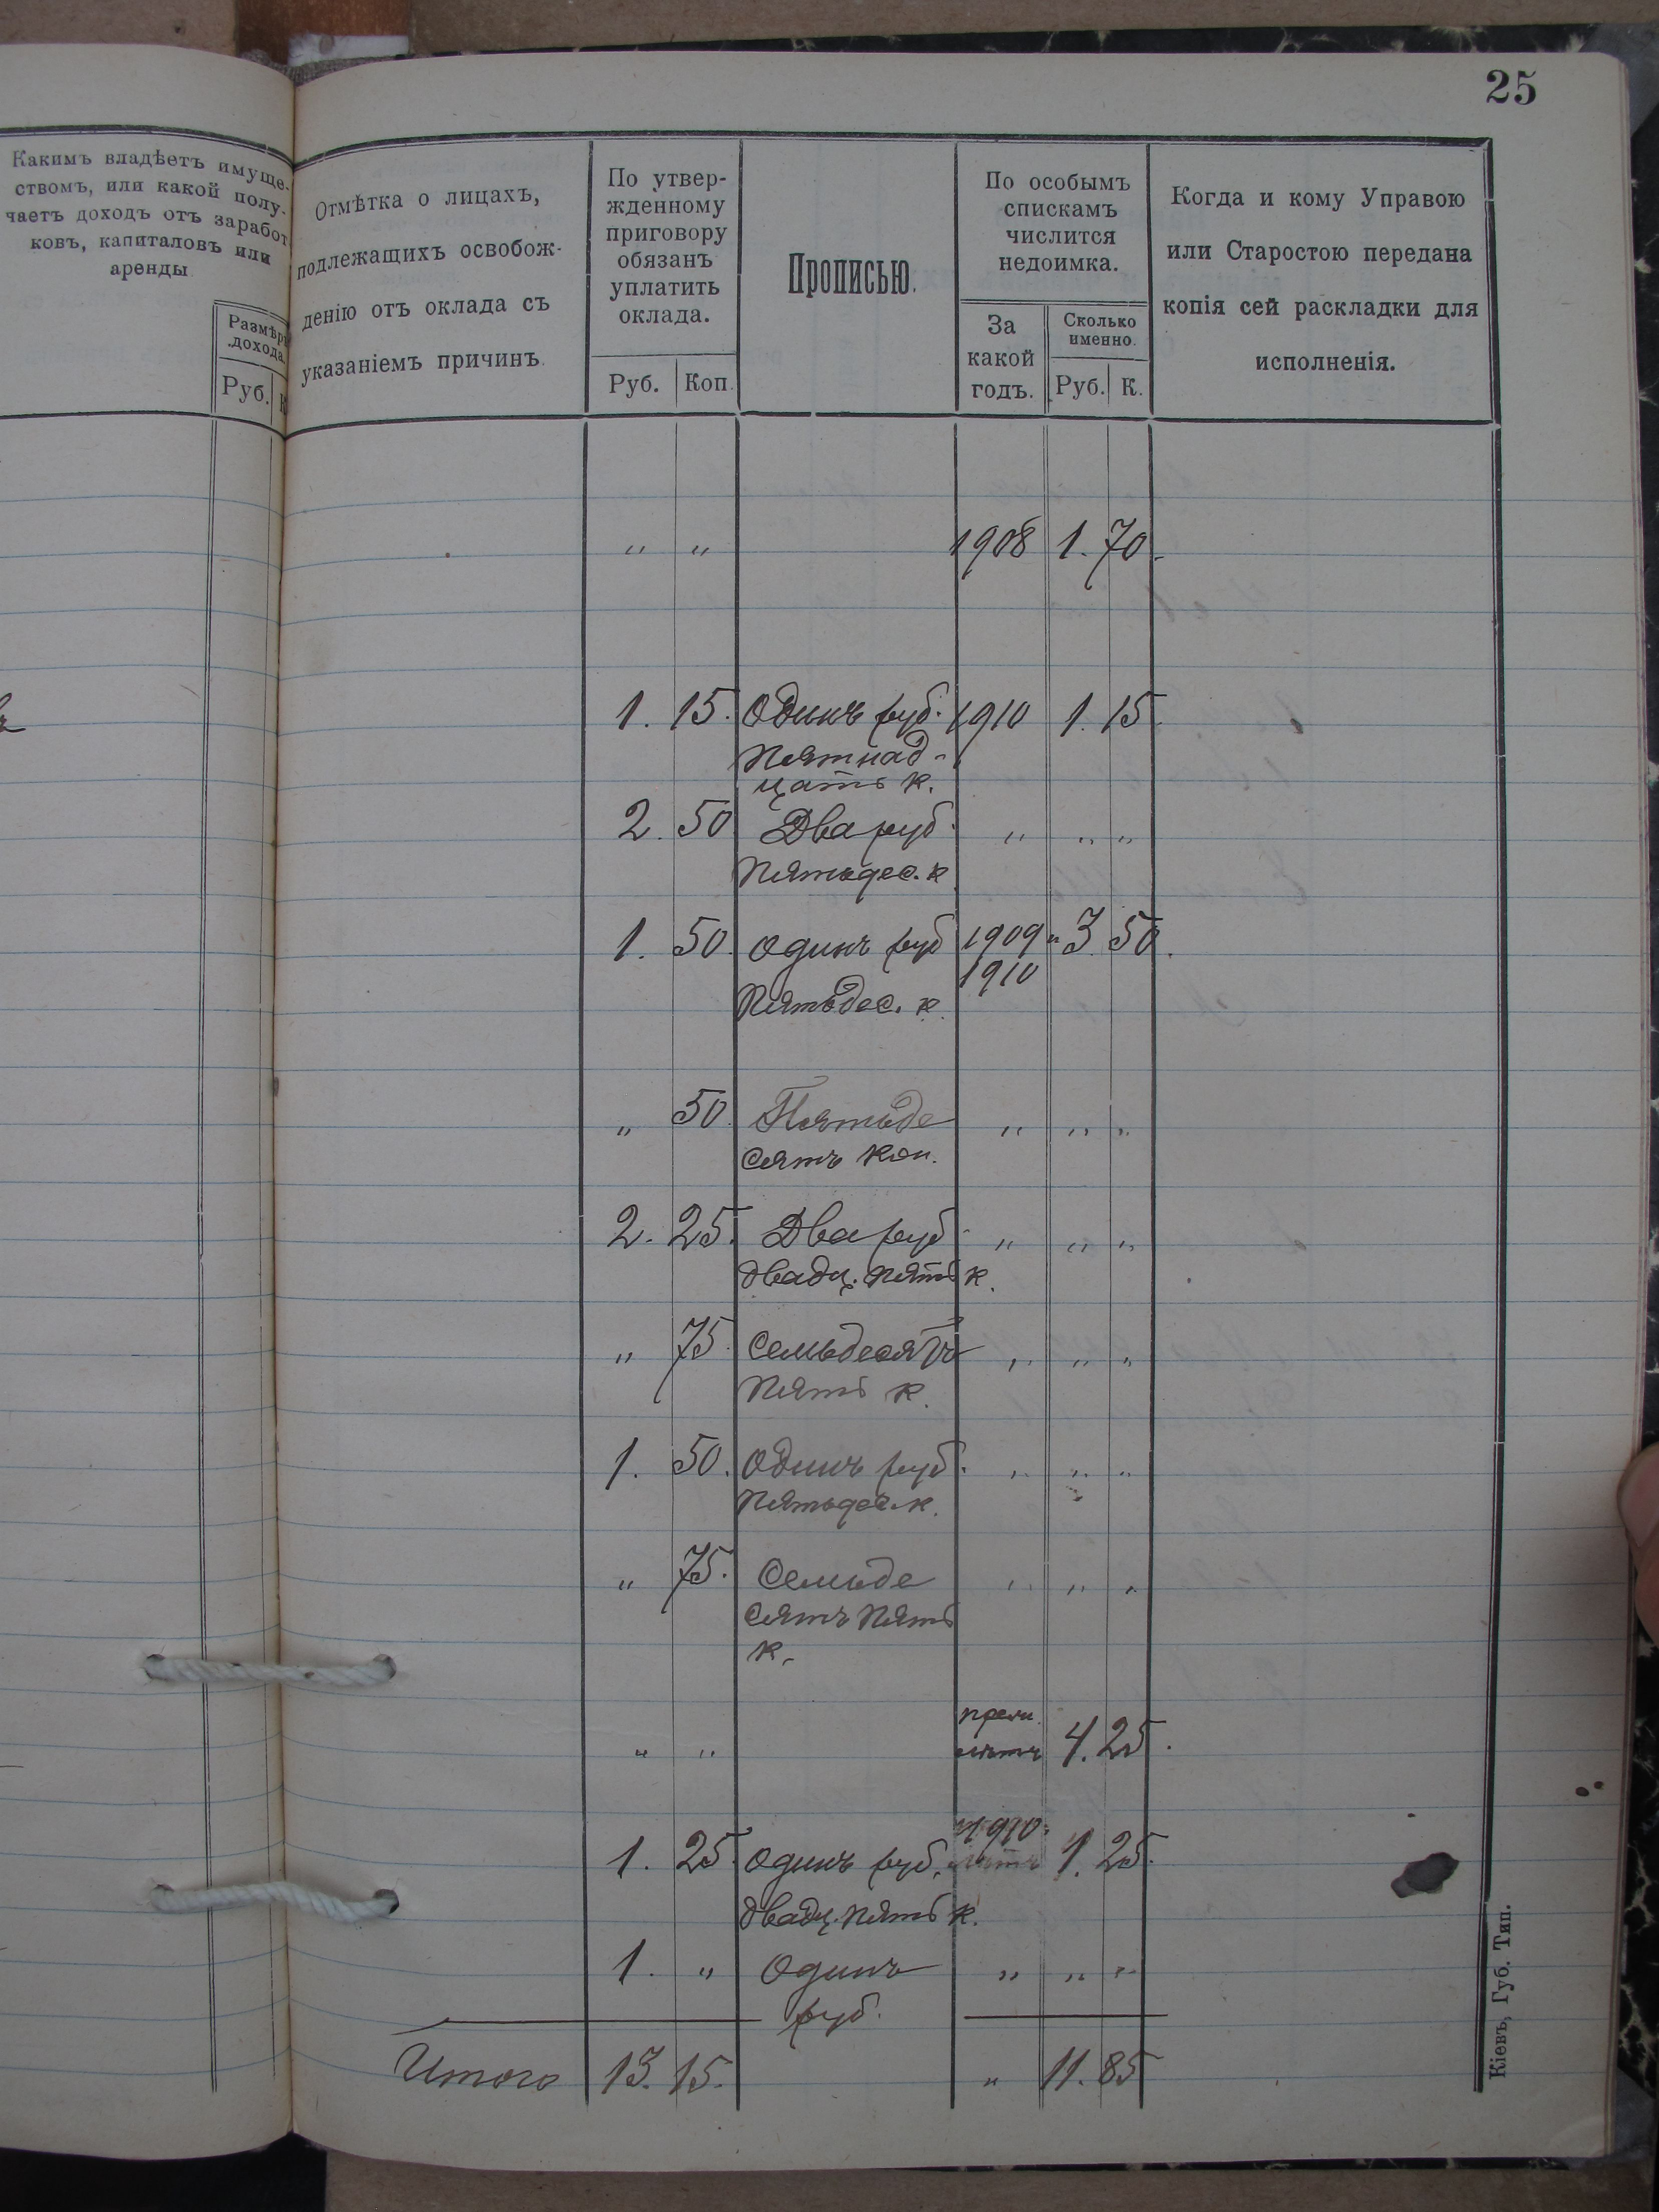 25
Какимъ владѣетъ имуще-
ствомъ, или какой полу-
чаетъ доходъ отъ заработ
ковъ, капиталовъ или
аренды
Размѣръ
дохода.
Руб. К
Отмѣтка о лицахъ,
подлежащихъ освобож-
денію отъ оклада съ
указаніемъ причинъ.
По утвер-
жденному
приговору
обязанъ
уплатить
оклада.
Руб. Коп.
Прописью.
По особымъ
спискамъ
числится
недоимка.
За
какой
годъ.
Сколько
именно.
Руб. К.
Когда и кому Управою
или Старостою передана
копія сей раскладки для
исполненія.
" " 1908 1. 70.
1. 15. Одинъ руб. 1910 1. 15.
Пятнад-
цать к.
2. 50 Два руб. " " "
Пятьдес. к
1. 50. Одинъ руб 1909 и 3. 50.
1910
Пятьдес. к.
" 50. Пятьде " " "
сятъ коп.
2. 25. Два руб " " "
двадц. пять к.
" 75. Семьдесятъ " " "
Пять к.
1. 50. Одинъ руб. " " "
Пятьдес. к.
" 75. Семьде " " "
сятъ пять
к.
" " лѣтъ 4. 25.
1910
1. 25. Одинъ руб. 1. 25.
двадц. пять к.
1. " Одинъ " " "
руб.
Итого 13. 15. " 11. 85
Кіевъ, Губ. Тип.